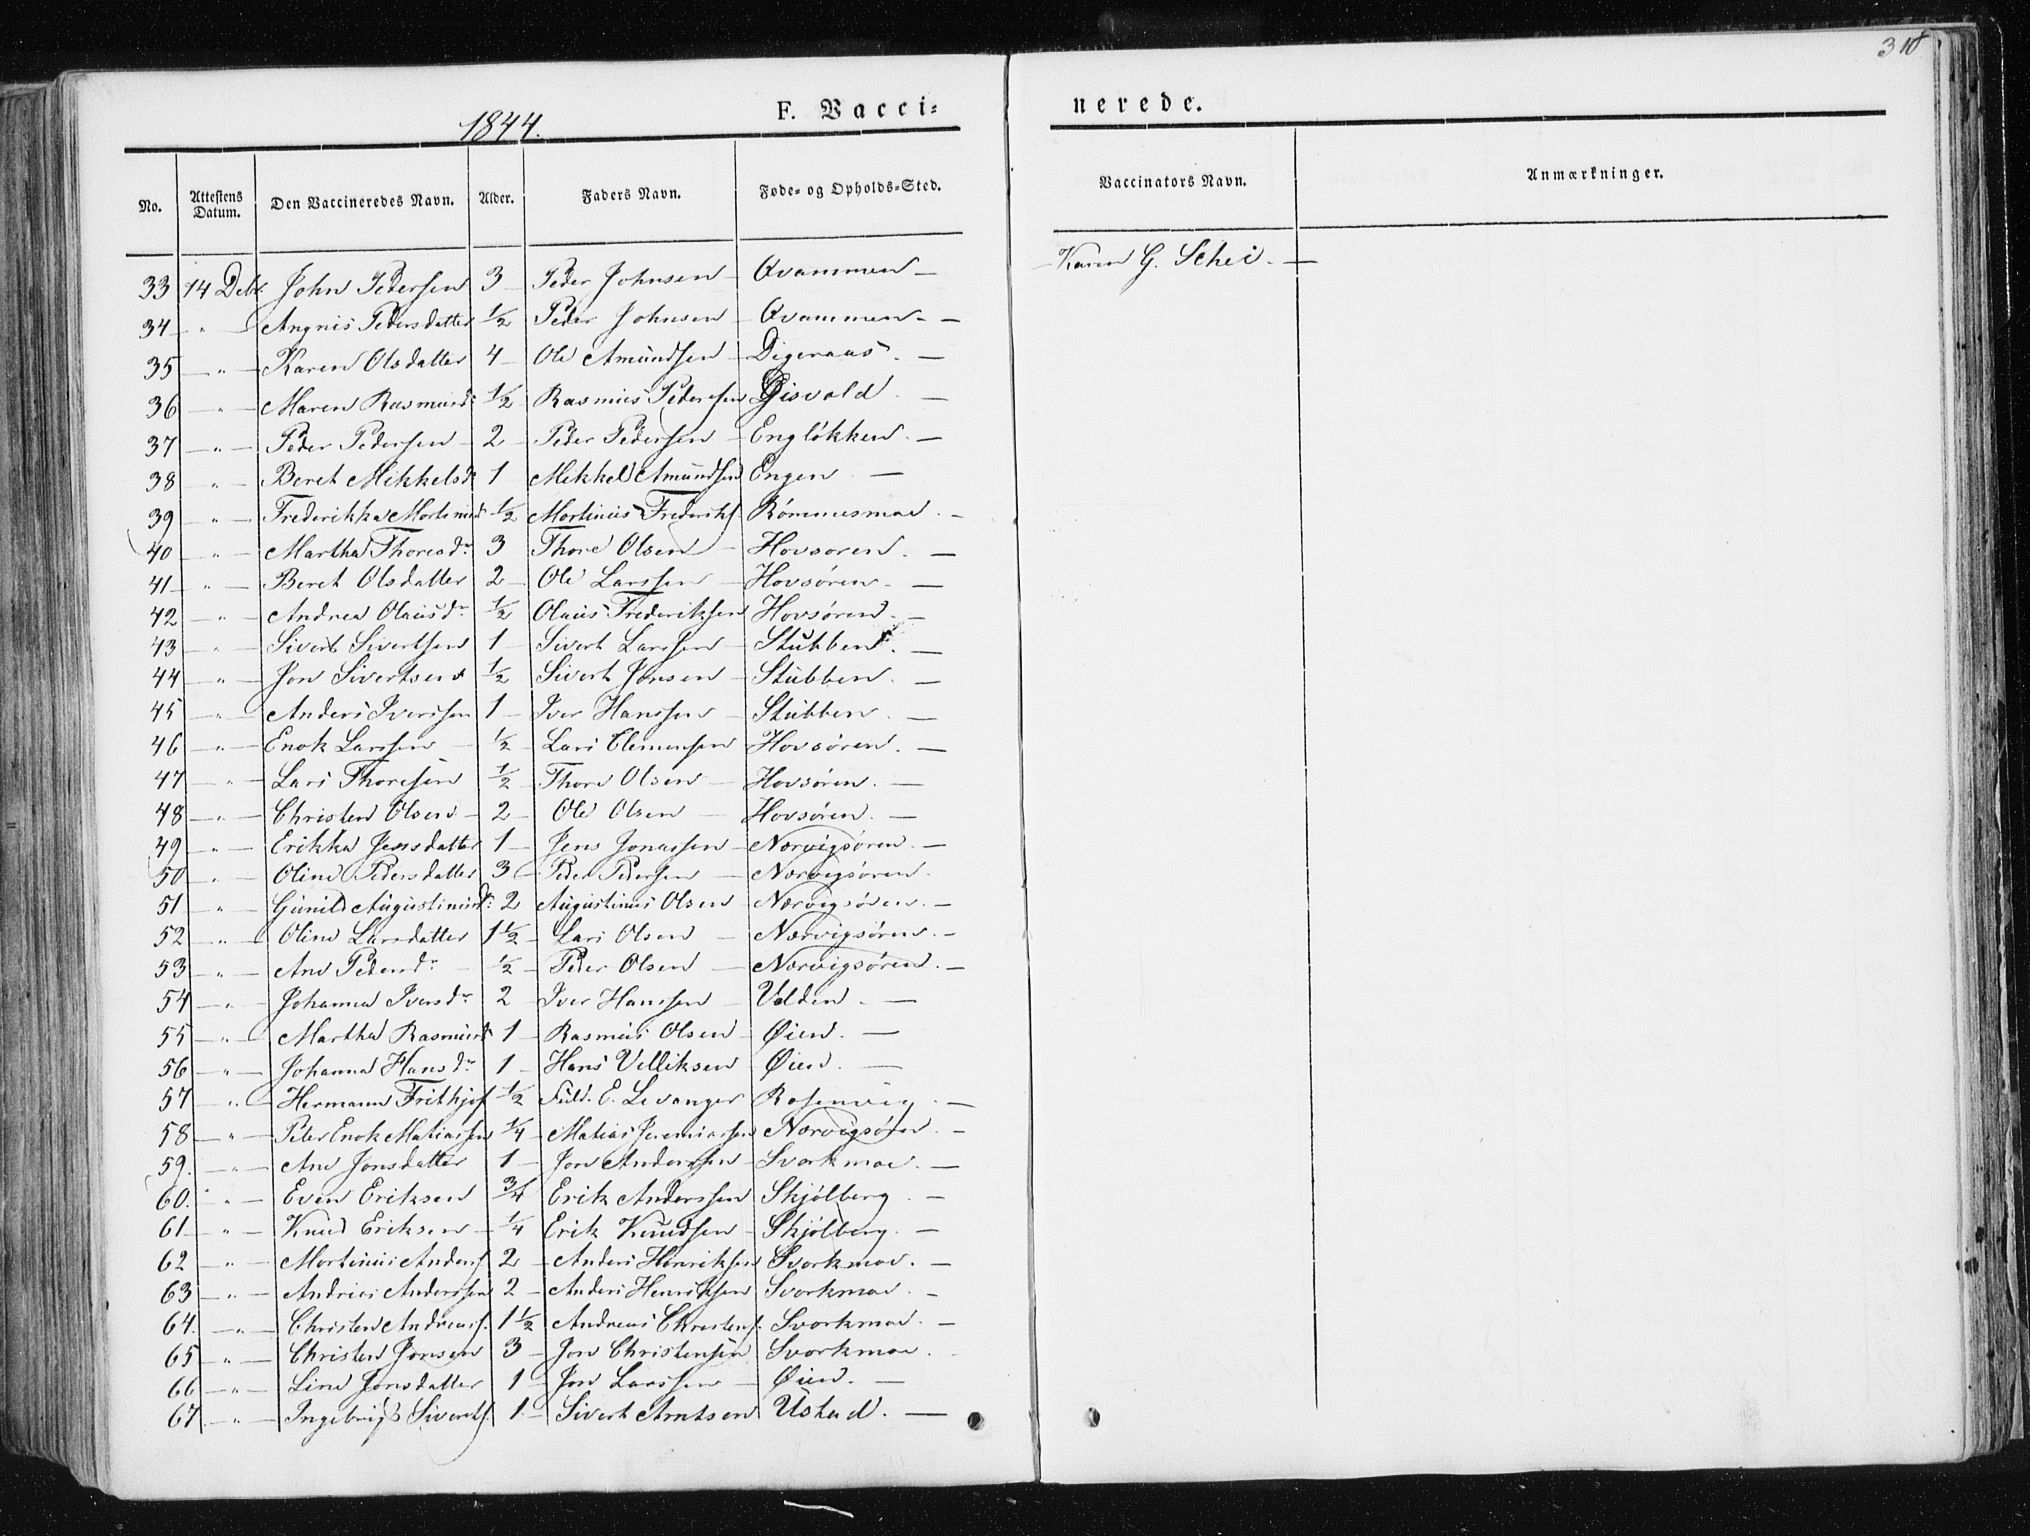 310
1844.
F. Vacci-
nerede.
No. Attestens Datum. Den Vaccineredes Navn. Alder. Faders Navn. Føde- og Opholds-Sted. Vaccinators Navn. Anmærkninger.
33 14 Debr. John Pedersen 3 – Peder Johnsen – Qvammen – Karen G. Schei. –
34 – " – Angnis Pedersdatter ½ – Peder Johnsen – Qvammen – –
35 – " – Karen Olsdatter 4 – Ole Amundsen – Digeraas. –
36 – " – Maren Rasmusd: ½ – Rasmus Pedersen Gisvold. –
37 – " – Peder Pedersen – 2 – Peder Pedersen – Engløkken. –
38 – " – Beret Mikkelsdr 1 – Mikkel Amundsen Engen. –
39 – " – Frederikka Mortinusd ½ Mortinus Frederiks. Rømmesmoe. –
40 – " – Martha Thoresdr 3 Thore Olsen – Hovsøren. –
41 – " – Beret Olsdatter 2 – Ole Larssen – Hovsøren. –
42 – " – Andrea Olausdr ½ Olaus Frederiksen Hovsøren. –
43 – " – Sivert Sivertsen 1 – Sivert Larssen – Stubben. –
44 – " – Jon Sivertsen ½ – Sivert Jonsen – Stubben. –
45 – " – Anders Iverssen 1 – Iver Hanssen – Stubben. –
46 – " – Enok Larssen – ½ – Lars Clemensen – Hovsøren. –
47 – " – Lars Thoresen ½ – Thore Olsen – Hovsøren. –
48 – " – Christen Olsen – 2 – Ole Olsen – Hovsøren. –
49 – " – Erikka Jensdatter 1 – Jens Jonassen – Nervigsøren. –
50 – " – Oline Pedersdatter 3 – Peder Pedersen – Nervigsøren.
51 – " – Gunild Augustinusd: 2 Augustinus Olsen – Nervigsøren. –
52 – " – Oline Larsdatter 1½ – Lars Olsen – Nervigsøren. –
53 – " – Ane Pedersdr – ½ – Peder Olsen – Nervigsøren. –
54 – " – Johanna Iversdr 2 – Iver Hanssen – Volden. –
55 – " – Martha Rasmusd 1 – Rasmus Olsen – Øien. –
56 – " – Johanna Hansdr 1 – Hans Velliksen Øien. –
57 – " – Hermann Frithjof ½ E. Levanger Rosenvig. –
58 – " – Peter Enok Matiassen ¼ – Matias Jeremiassen Nervigsøren. –
59. – " – Ane Jonsdatter 1 – Jon Anderssen – Svorkmoe. –
60. " – Even Eriksen ¾ Erik Anderssen Skjølberg. –
61 – " – Knud Eriksen – ¼ Erik Knudsen – Skjølberg. –
62 – " – Mortinus Anders. 2 – Anders Henriksen Svorkmoe. –
63 – " – Andreas Anderssen 2 – Anders Henriksen Svorkmoe. –
64. – " – Christen Andreas. 1½ – Andreas Christens. Svorkmoe. –
65 – " – Christen Jonsen 3 – Jon Christensen Svorkmoe.
66 – " – Line Jonsdatter 1 – Jon Larssen – Øien. –
67 – " – Ingebrigt Siverts. 1 – Sivert Arntsen Ustad. –